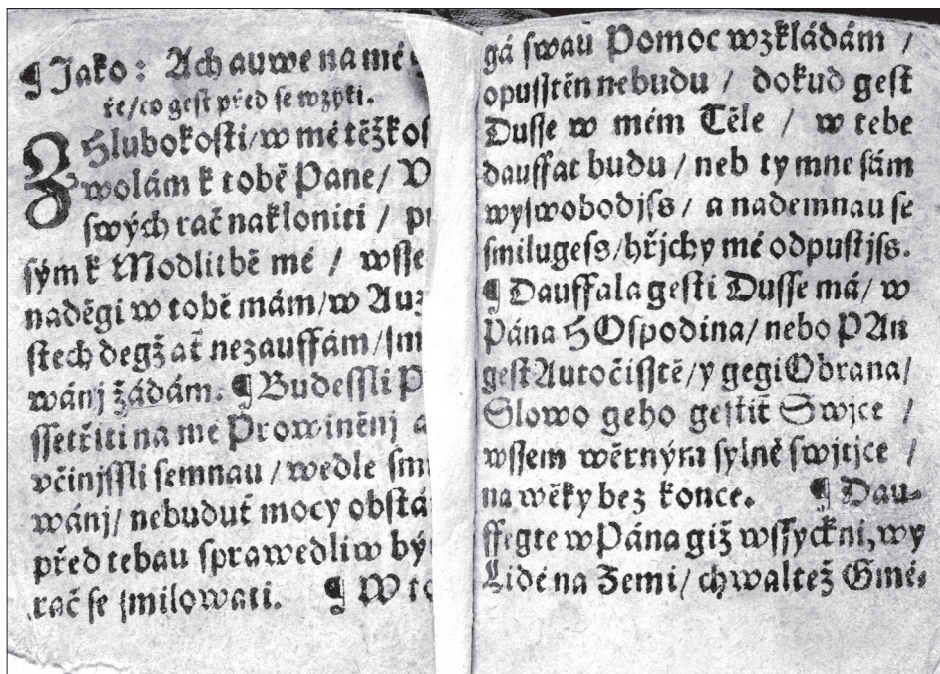 ¶ Jako: Ach auwe na mé
ře/co gest před se wzýti.
Z Hlubokosti/w mé těžkos
wolám k tobě Pane/ V
swých rač nakloniti / pr
sým k Modlitbě mé / wsse
naděgi w tobě mám/w Auz
stech degž ať nezauffám/sm
wánj žádám. ¶ Budessli P
ssetřiti na mé Prowiněnj a
včinjssli semnau / wedle sm
wánj/ nebuduť mocy obstá
před tebau sprawedliw bý
rač se smilowati. ¶ W to
gá swau Pomoc wzkládám /
opusstěn nebudu / dokud gest
Dusse w mém Těle / w tebe
dauffat budu / neb ty mne sám
wyswobodjss / a nademnau se
smilugess/hřjchy mé odpustjss.
¶ Dauffala gesti Dusse má/ w
Pána HOspodina/ nebo PAn
gest Autočisstě/y gegi Obrana/
Slowo geho gestiť Swjce /
wssem wěrným sylně swjtjce /
na wěky bez konce. ¶ Dau-
ffegte w Pána giž wssyckni, wy
Lidé na Zemi/ chwaltež Gmé-